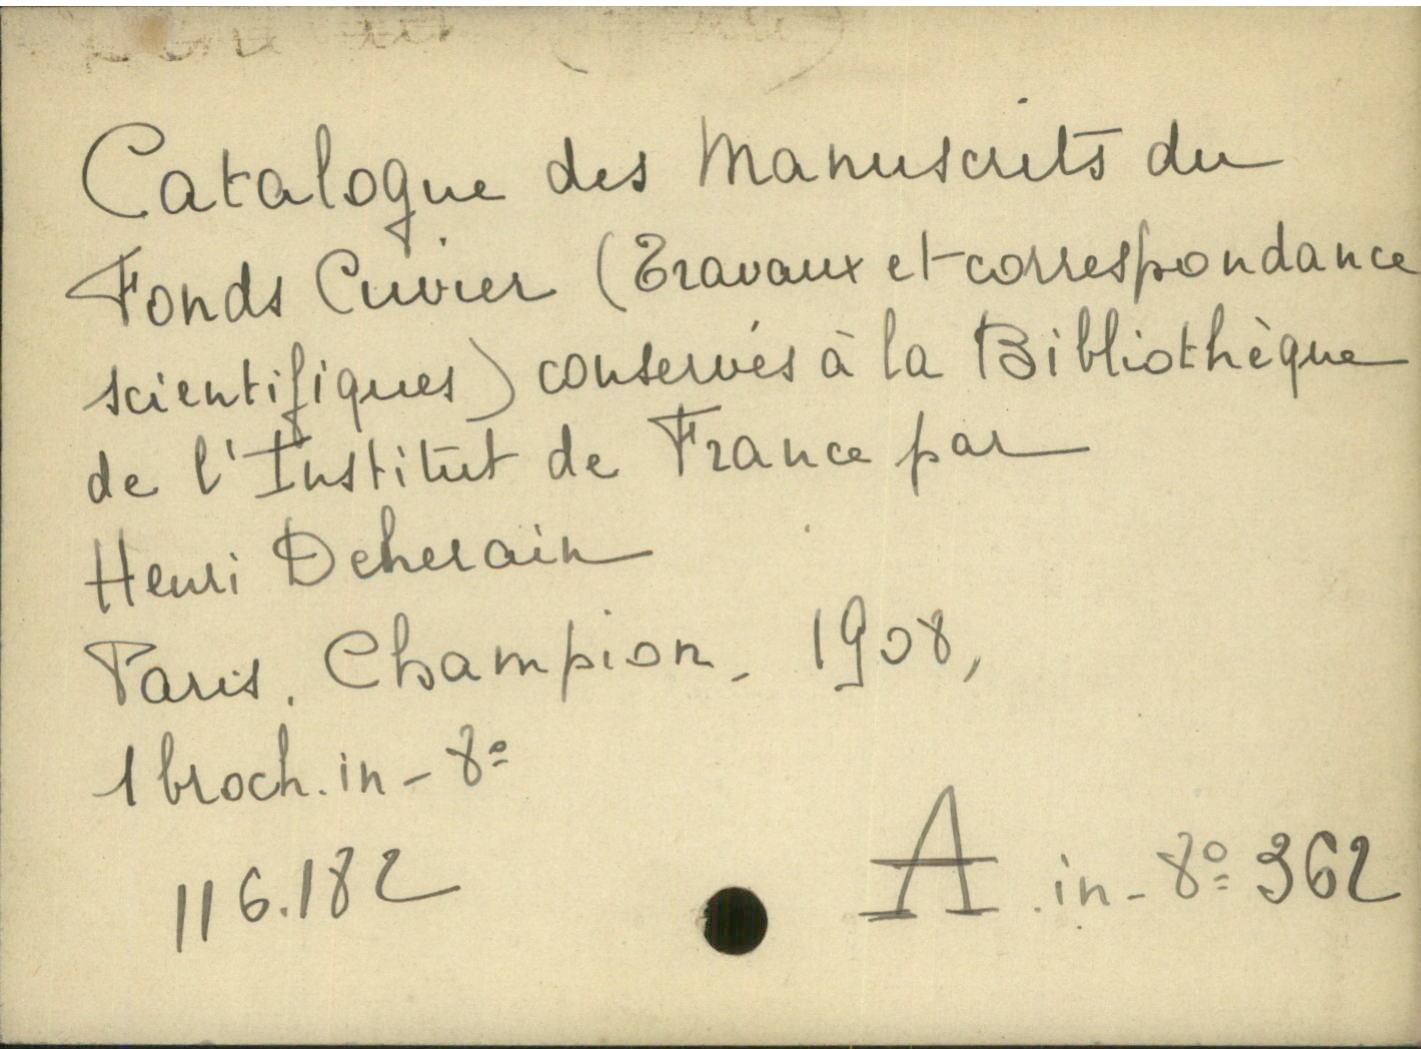 Catalogue des Manuscrits du
Fonds Cuvier (Travaux et correspondance
scientifiques) conservés à la Bibliothèque
de l'Institut de France par
Henri Deherain
Paris. Champion. 1908,
1 broch. in-8º
116.182
A. in-8º 362